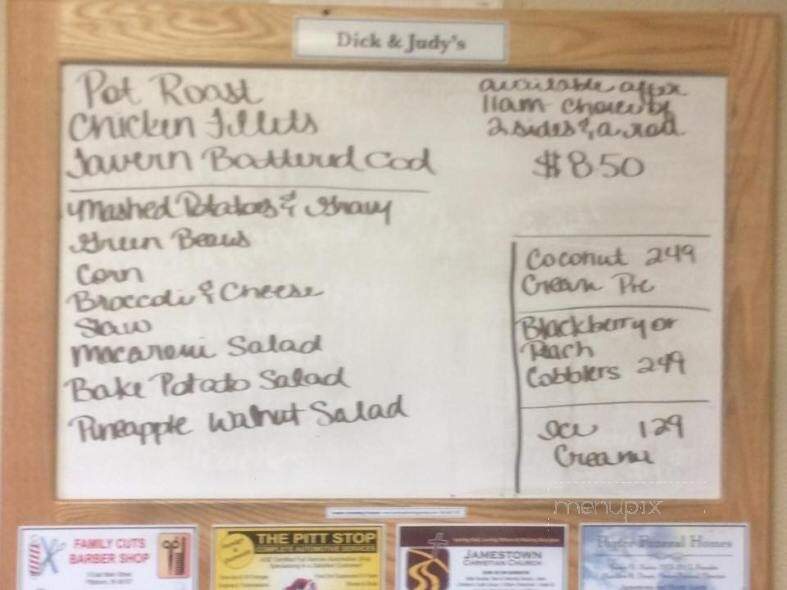 Dick & Judy's
Pot Roast
Chicken Fillets
Tavern Battered Cod
Mashed Potatoes & Gravy
Green Beans
Corn
Broccoli & Cheese
Slaw
Macaroni Salad
Bake Potato Salad
Pineapple Walnut Salad
available after
11am choice of
2 sides & a roll
$8 50
Coconut 249
Cream Pie
Blackberry or
Peach
Cobblers 249
Ice 129
Cream
menupix
FAMILY CUTS
BARBER SHOP
THE PITT STOP
COMPLETE AUTOMOTIVE SERVICES
JAMESTOWN
CHRISTIAN CHURCH
Funeral Homes